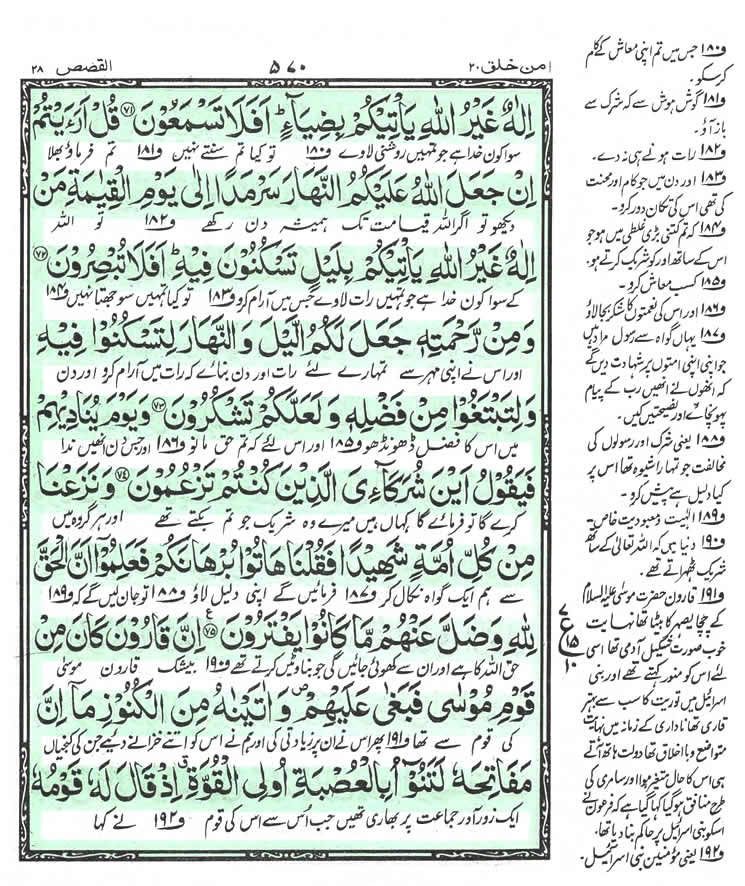 امن خلق ۲۰
۵۷۰
القصص ۲۸
اِلٰهٌ غَيْرُ اللّٰهِ يَاْتِيْكُمْ بِضِيَآءٍ ؕ اَفَلَا تَسْمَعُوْنَ ﴿۷۱﴾ قُلْ اَرَءَيْتُمْ
سوا کون خدا ہے جو تمہیں روشنی لا دے و۱۸۰ تو کیا تم سنتے نہیں و۱۸۱ تم فرماؤ بھلا
اِنْ جَعَلَ اللّٰهُ عَلَيْكُمُ النَّهَارَ سَرْمَدًا اِلٰى يَوْمِ الْقِيٰمَةِ مَنْ
دیکھو تو اگر اللہ قیامت تک ہمیشہ دن رکھے و۱۸۲ تو اللہ
اِلٰهٌ غَيْرُ اللّٰهِ يَاْتِيْكُمْ بِلَيْلٍ تَسْكُنُوْنَ فِيْهِ ؕ اَفَلَا تُبْصِرُوْنَ ﴿۷۲﴾
کے سوا کون خدا ہے جو تمہیں رات لا دے جس میں آرام کرو و۱۸۳ تو کیا تمہیں سوجھتا نہیں و۱۸۴
وَمِنْ رَّحْمَتِهٖ جَعَلَ لَكُمُ الَّيْلَ وَالنَّهَارَ لِتَسْكُنُوْا فِيْهِ
اور اس نے اپنی مہر سے تمہارے لئے رات اور دن بنائے کہ رات میں آرام کرو اور دن
وَلِتَبْتَغُوْا مِنْ فَضْلِهٖ وَلَعَلَّكُمْ تَشْكُرُوْنَ ﴿۷۳﴾ وَيَوْمَ يُنَادِيْهِمْ
میں اس کا فضل ڈھونڈھو و۱۸۵ اور اس لئے کہ تم حق مانو و۱۸۶ اور جس دن انھیں ندا
فَيَقُوْلُ اَيْنَ شُرَكَآءِيَ الَّذِيْنَ كُنْتُمْ تَزْعُمُوْنَ ﴿۷۴﴾ وَنَزَعْنَا
کرے گا تو فرمائے گا کہاں ہیں میرے وہ شریک جو تم بکتے تھے اور ہر گروہ میں
مِنْ كُلِّ اُمَّةٍ شَهِيْدًا فَقُلْنَا هَاتُوْا بُرْهَانَكُمْ فَعَلِمُوْۤا اَنَّ الْحَقَّ
سے ہم ایک گواہ نکال کر و۱۸۷ فرمائیں گے اپنی دلیل لاؤ و۱۸۸ تو جان لیں گے کہ و۱۸۹
لِلّٰهِ وَضَلَّ عَنْهُمْ مَّا كَانُوْا يَفْتَرُوْنَ ﴿۷۵﴾ ع اِنَّ قَارُوْنَ كَانَ مِنْ
حق اللہ کا ہے اور ان سے کھوئی جائیں گی جو بناوٹیں کرتے تھے و۱۹۰ بیشک قارون موسٰی
قَوْمِ مُوْسٰى فَبَغٰى عَلَيْهِمْ ۪ وَاٰتَيْنٰهُ مِنَ الْكُنُوْزِ مَاۤ اِنَّ
کی قوم سے تھا و۱۹۱ پھر اس نے ان پر زیادتی کی اور ہم نے اس کو اتنے خزانے دئیے جن کی کنجیاں
مَفَاتِحَهٗ لَتَنُوْٓاُ بِالْعُصْبَةِ اُولِى الْقُوَّةِ ۗ اِذْ قَالَ لَهٗ قَوْمُهٗ
ایک زور آور جماعت پر بھاری تھیں جب اس سے اس کی قوم و۱۹۲ نے کہا
و۱۸۰ جس میں تم اپنی معاش کے کام
کر سکو۔
و۱۸۱ گوش ہوش سے کہ شرک سے
باز آؤ۔
و۱۸۲ رات ہونے ہی نہ دے۔
و۱۸۳ اور دن میں جو کام اور محنت
کی تھی اس کی تکان دور کرو۔
و۱۸۴ کہ تم کتنی بڑی غلطی میں ہو جو
اس کے ساتھ اور کو شریک کرتے ہو۔
و۱۸۵ کسب معاش کرو۔
و۱۸۶ اور اس کی نعمتوں کا شکر بجا لاؤ
و۱۸۷ یہاں گواہ سے رسول مراد ہیں
جو اپنی اپنی امتوں پر شہادت دیں گے
کہ انھوں نے انھیں رب کے پیام
پہونچائے اور نصیحتیں کیں۔
و۱۸۸ یعنی شرک اور رسولوں کی
مخالفت جو تمہارا شیوہ تھا اس پر
کیا دلیل ہے پیش کرو۔
و۱۸۹ الٰہیت و معبودیت خاص
و۱۹۰ دنیا میں کہ اللہ تعالیٰ کے ساتھ
شریک ٹھہراتے تھے۔
و۱۹۱ قارون حضرت موسٰی علیہ السلام
کے چچا یصہر کا بیٹا تھا نہایت
خوب صورت شکیل آدمی تھا اسی
لئے اس کو منور کہتے تھے اور بنی
اسرائیل میں توریت کا سب سے بہتر
قاری تھا ناداری کے زمانہ میں نہایت
متواضع و با اخلاق تھا دولت ہاتھ آتے
ہی اس کا حال متغیر ہوا اور سامری کی
طرح منافق ہو گیا کہا گیا ہے کہ فرعون نے
اسکو بنی اسرائیل پر حاکم بنا دیا تھا۔
و۱۹۲ یعنی مؤمنین بنی اسرائیل۔
۷
ع
۱۵
۱۰